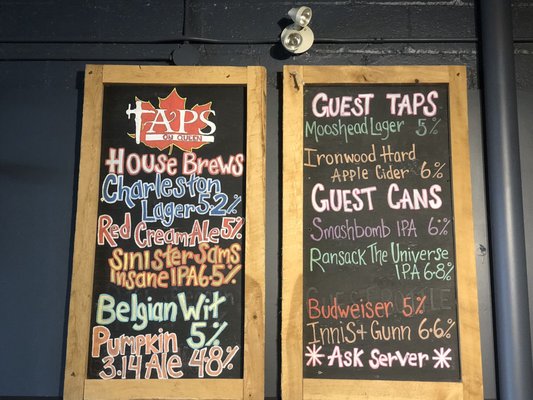 TAPS
ON QUEEN
House Brews
Charleston
Lager 5.2%
Red Cream Ale 5%
Sinister Sams
Insane IPA 6.5%
Belgian Wit
5%
Pumpkin
3.14 Ale 4.8%
Guest Taps
Mooshead Lager 5%
Ironwood Hard
Apple Cider 6%
Guest Cans
Smashbomb IPA 6%
Ransack The Universe
IPA 6.8%
Budweiser 5%
InniS & Gunn 6.6%
*Ask Server*